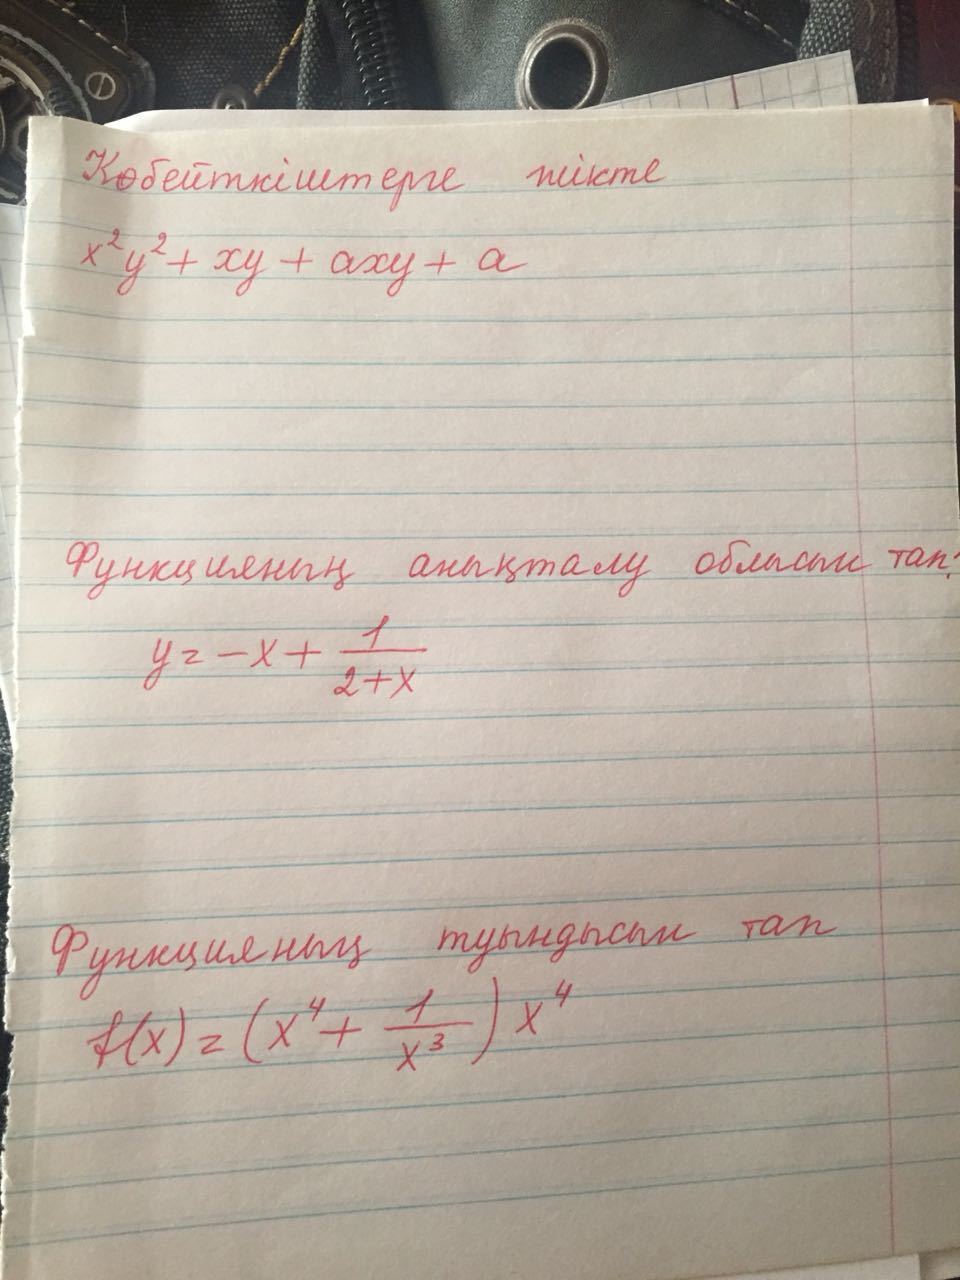 Көбейткіштерге жікте
x²y² + xy + axy + a
Функцияның анықталу облысын тап.
y = -x + 1/(2+x)
Функцияның туындысын тап
f(x) = (x⁴ + 1/x³) x⁴